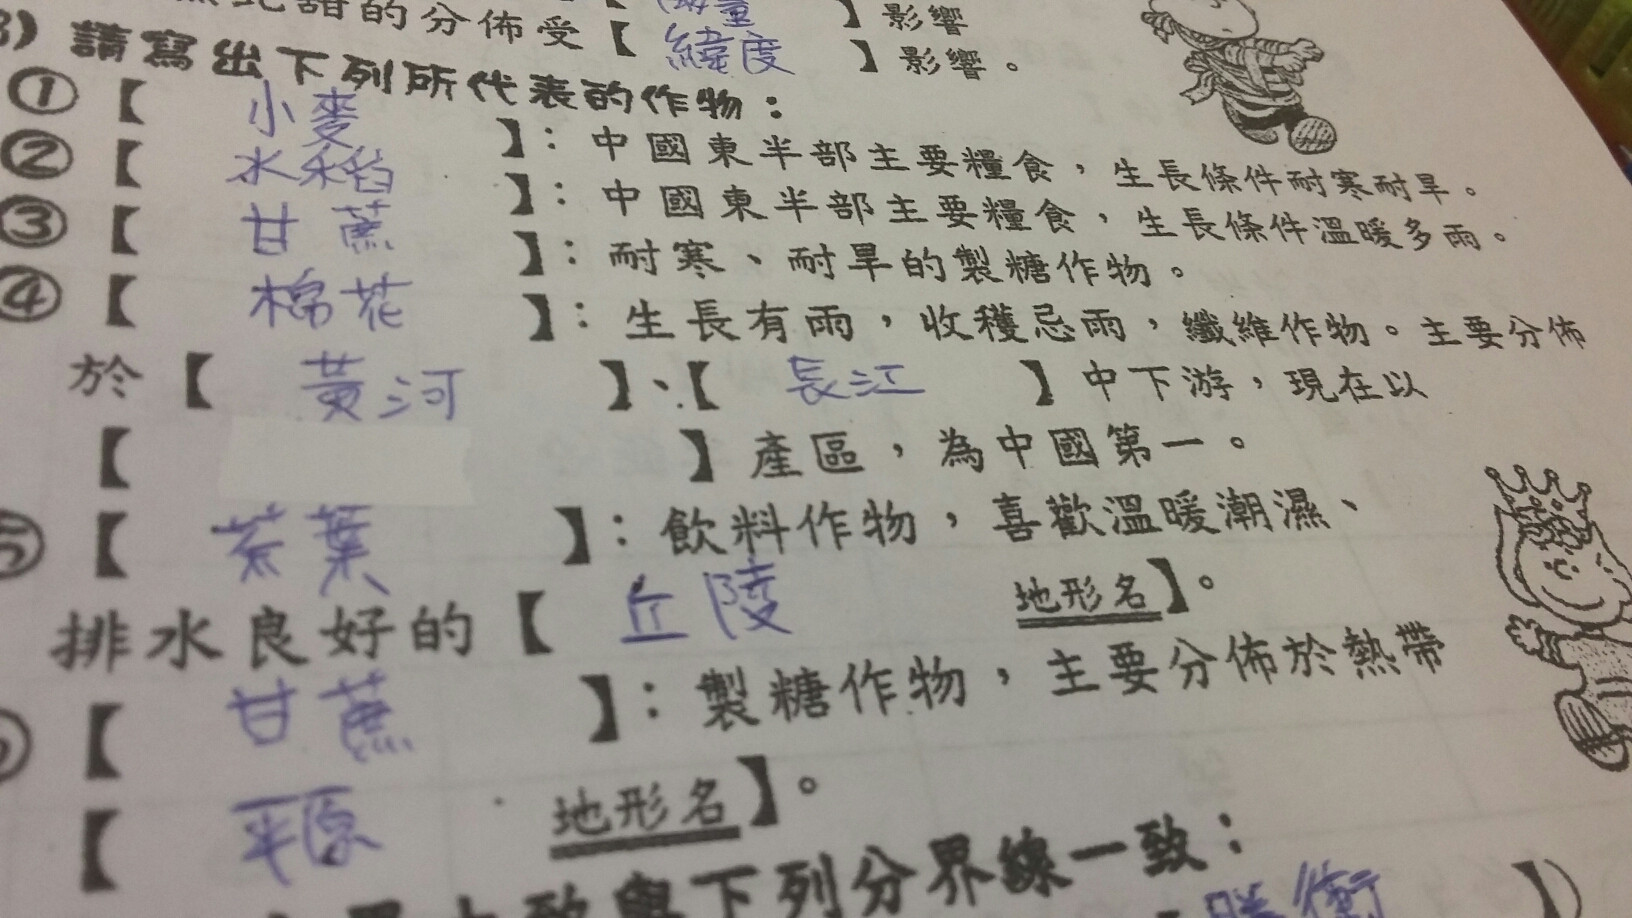 甜的分佈受【 】影響
【 緯度 】影響。
3) 請寫出下列所代表的作物：
①【 小麥 】：中國東半部主要糧食，生長條件耐寒耐旱。
②【 水稻 】：中國東半部主要糧食，生長條件溫暖多雨。
③【 甘蔗 】：耐寒、耐旱的製糖作物。
④【 棉花 】：生長有雨，收穫忌雨，纖維作物。主要分佈
於【 黃河 】、【 長江 】中下游，現在以
【 】產區，為中國第一。
⑤【 茶葉 】：飲料作物，喜歡溫暖潮濕、
排水良好的【 丘陵 地形名】。
【 甘蔗 】：製糖作物，主要分佈於熱帶
【 平原 地形名】。
致與下列分界線一致：